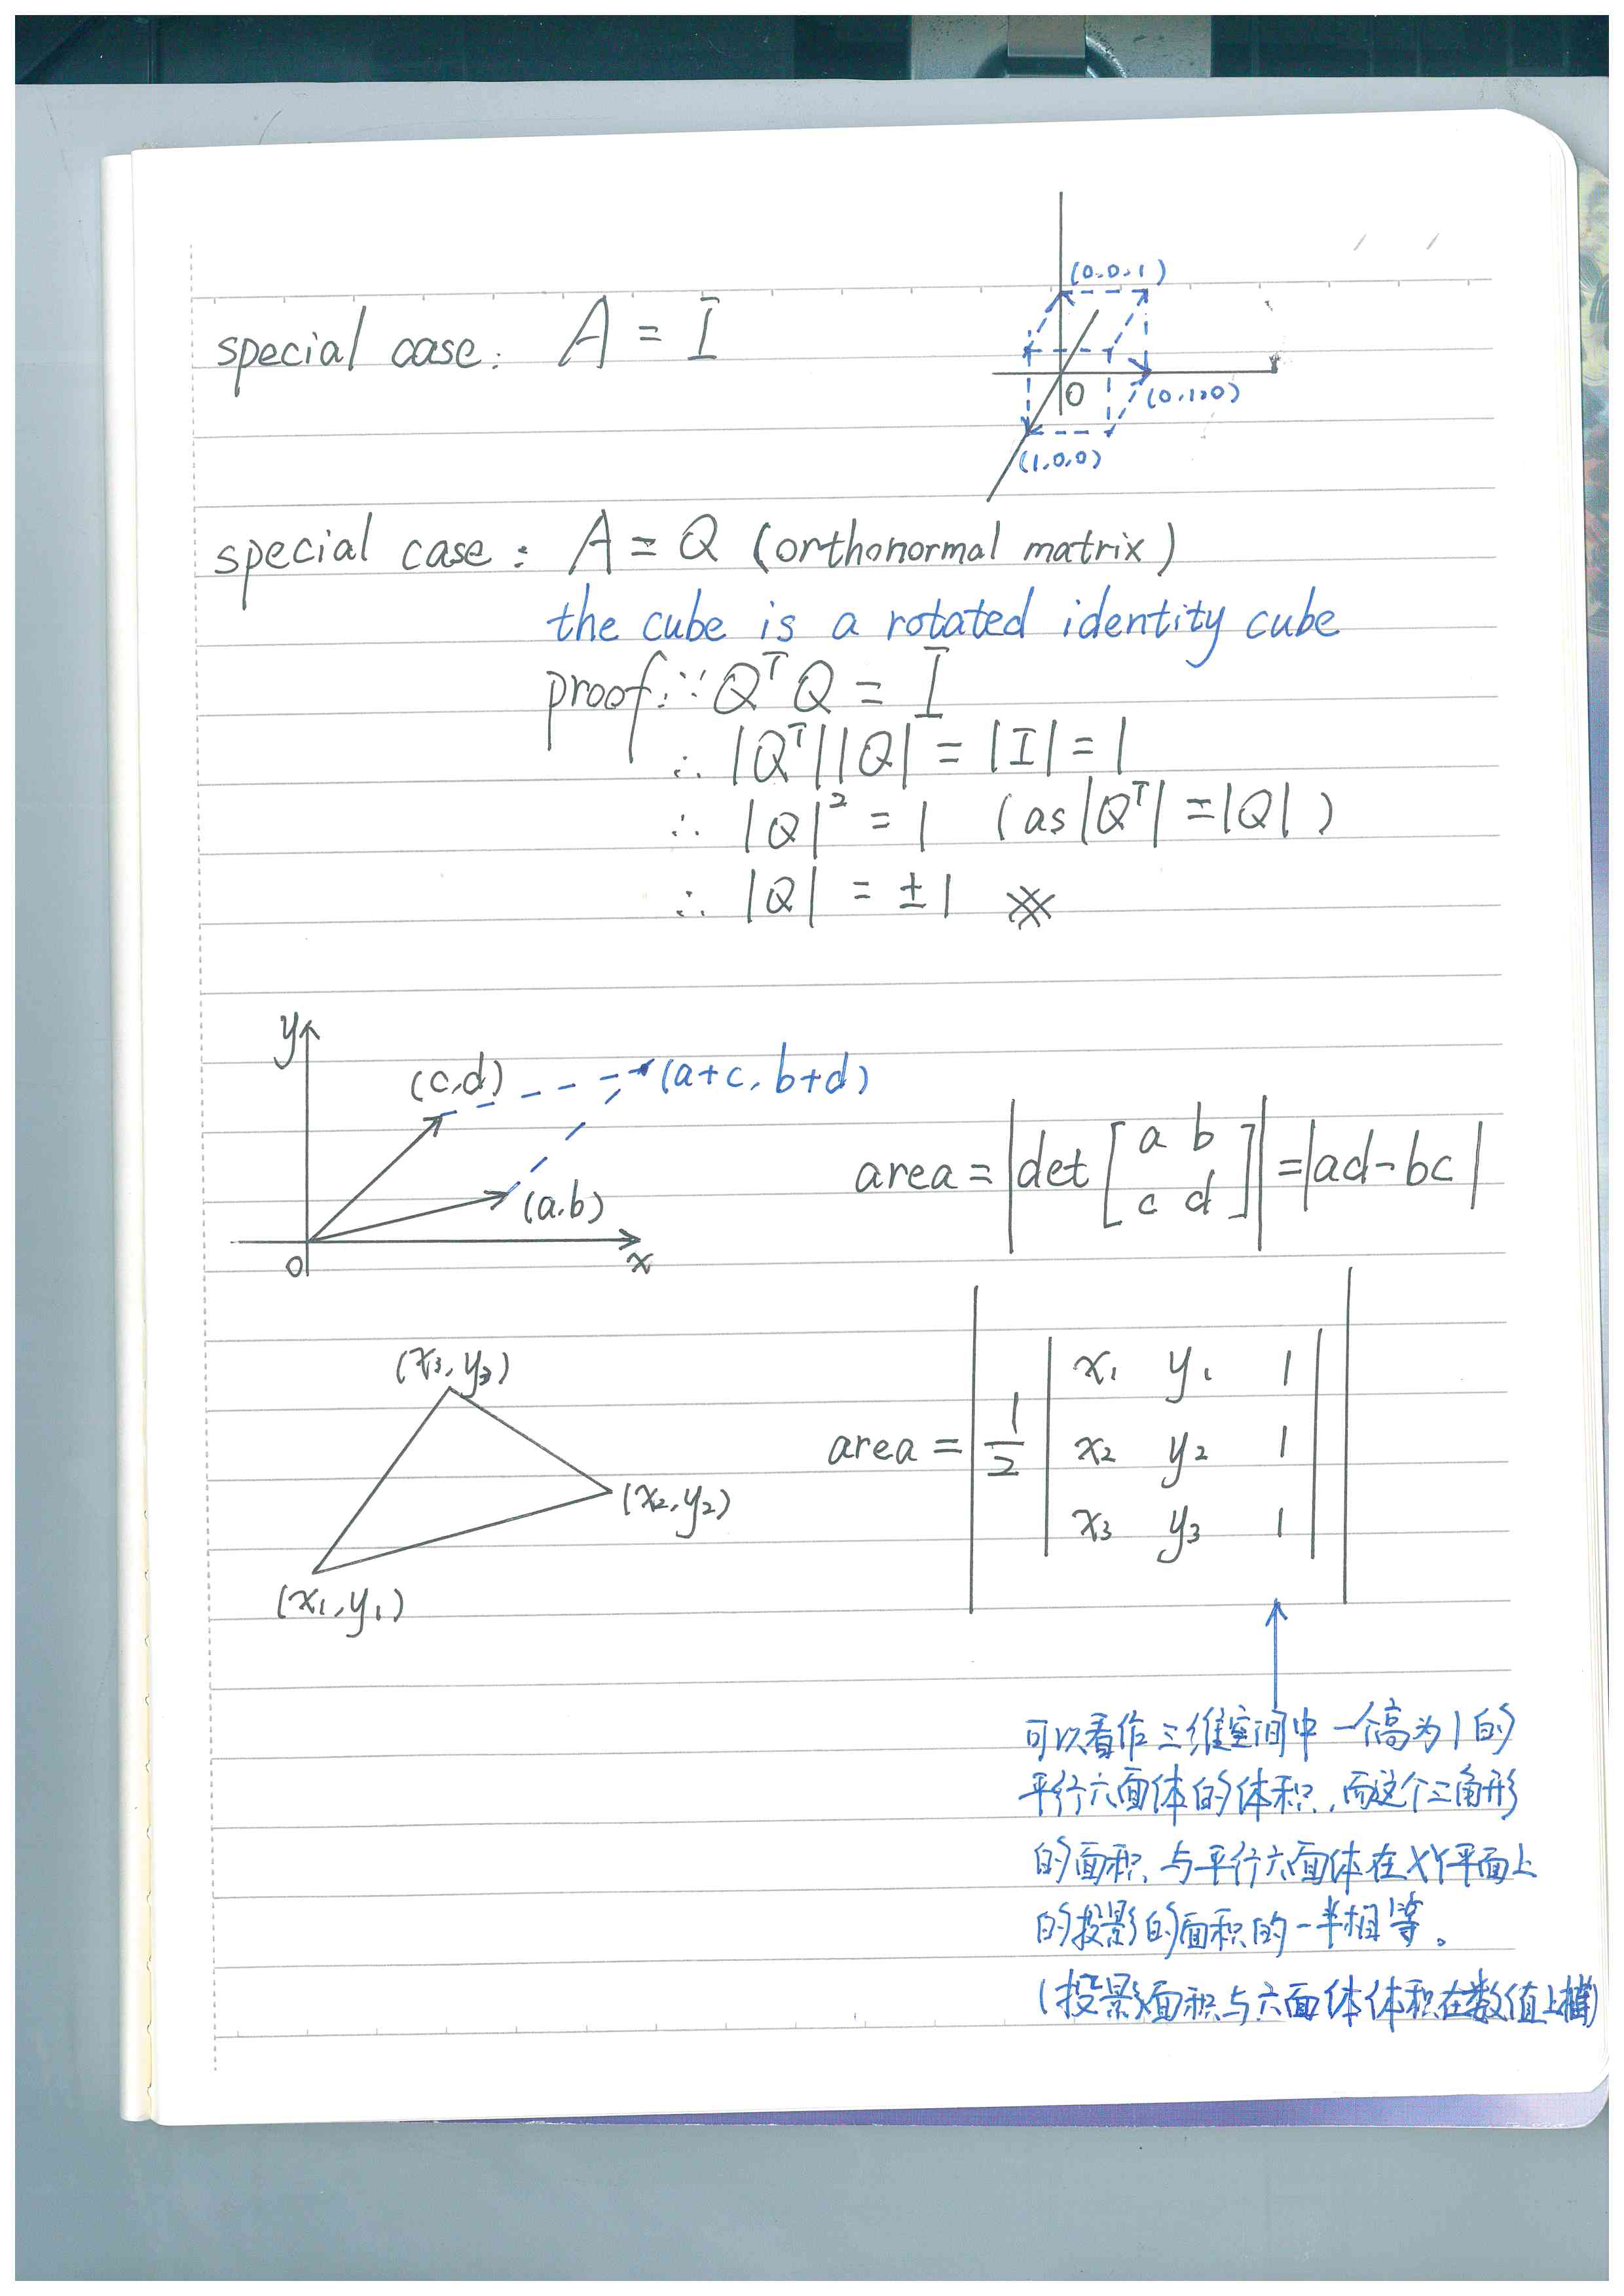 (0.0.1)
special case: A = I
O
(0.1.0)
(1.0.0)
special case: A = Q (orthonormal matrix)
the cube is a rotated identity cube
proof: ∵ QᵀQ = I
∴ |Qᵀ||Q| = |I| = 1
∴ |Q|² = 1 (as |Qᵀ| = |Q|)
∴ |Q| = ±1 ※
y
(c,d)
(a+c, b+d)
(a.b)
O
x
area = |det [a b
c d]| = |ad-bc|
(x₃,y₃)
(x₂,y₂)
(x₁,y₁)
area = | 1/2 | x₁ y₁ 1
x₂ y₂ 1
x₃ y₃ 1 | |
可以看作三维空间中一个高为1的
平行六面体的体积,而这个三角形
的面积与平行六面体在XY平面上
的投影的面积的一半相等。
(投影面积与六面体体积在数值上相等)